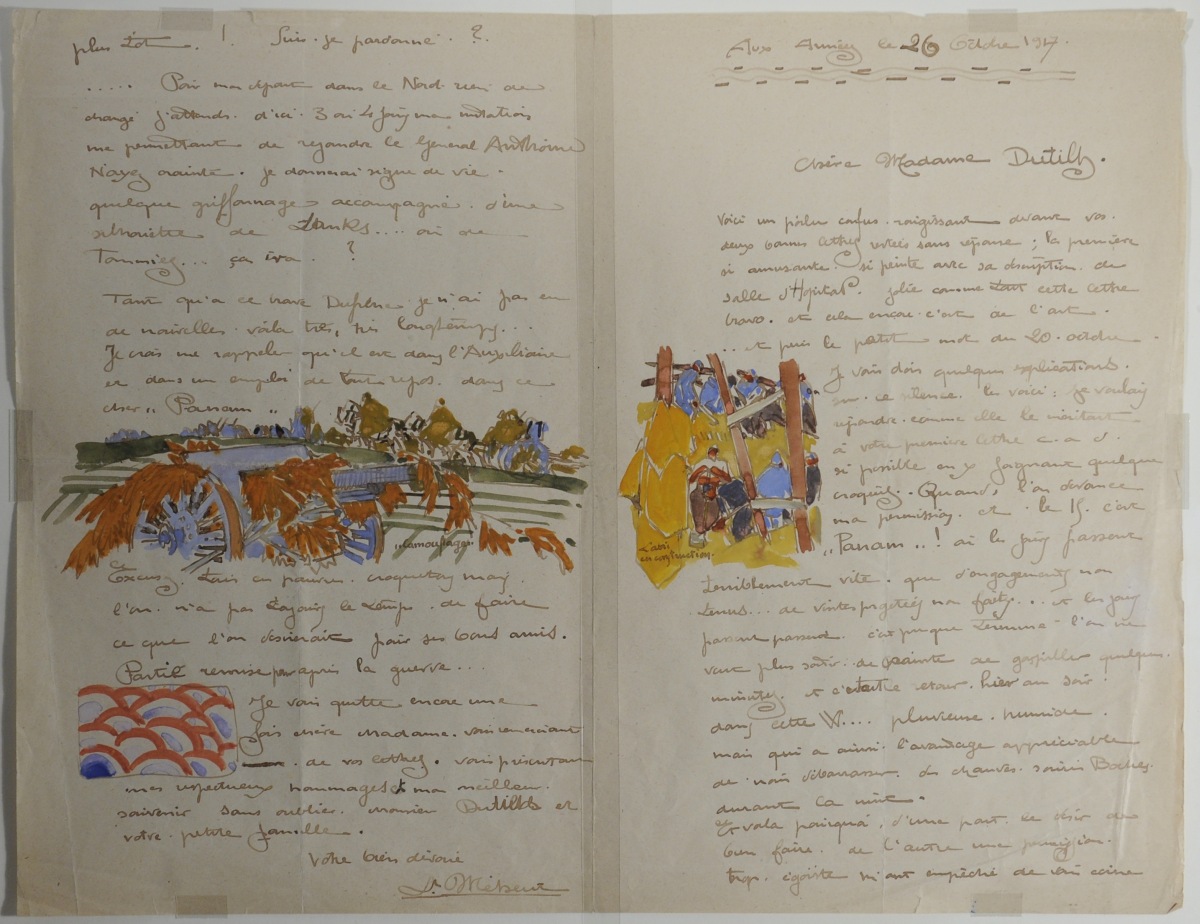 Aux Armées le 26 Octbre 1917.
Chère Madame Dutilh.
Voici un poilu confus. rougissant devant vos.
deux bonnes lettres restées sans réponse ; la première
si amusante. si peinte avec sa description. de
salle d'Hopital. jolie comme tout cette lettre
bravo. et cela encore c'est de l'art.
.. et puis le petit mot du 20. octobre.
Je vous dois quelques explications.
sur. ce silence. les voici : je voulais
répondre comme elle le méritait
à votre première lettre c. a d.
si possible en y joignant quelque
croquis.. Quand, l'on devance
ma permission. et. le 15. c'est
"Panam.. ! où les jours passent
terriblement vite. que d'engagements non
tenus... de visites projetées non faites... et les jours
passent passent. c'est presque
veut plus sortir. de crainte de gaspiller quelques.
minutes. et c'est le retour. hier au soir.
dans cette W.... pluvieuse. humide.
mais qui a aussi. l'avantage appréciable
de nous débarrasser. des chauves. souris Boches.
durant la nuit.
Et voila pourquoi. d'une part. le désir de
bien faire. de l'autre une permission.
trop. égoiste m'ont empêché de vous écrire
L'abri en construction.
plus tôt. ! Suis-je pardonné ?.
..... Pour mon départ dans le Nord rien de
changé j'attends. d'ici. 3 ou 4 jours ma mutation
me permettant de rejoindre le Général Anthoine
N'ayez crainte. je donnerai signe de vie.
quelque griffonnage accompagné. d'une
silhouette de Tanks.... ou de
Tommies... ça ira. ?
Tant qu'a ce brave Dufrène. je n'ai pas eu
de nouvelles. voila très, très longtemps...
Je crois me rappeler qu'il est dans l'Auxiliaire
et dans un emploi de tout repos. dans ce
cher " Panam "
"camouflage"
Et
Excusez. tous ces pauvres. croquetons mais.
l'on. n'a pas toujours le temps. de faire
ce que l'on désirerait pour ses bons amis.
Partie remise pour après la guerre...
Je vous quitte encore une
fois chère Madame. vous remerciant
de vos lettres. vous présentant
mes respectueux hommages et mon meilleur.
souvenir sans oublier. Monsieur Dutilh et
votre petite famille.
Votre bien dévoué
Mt. Méheut